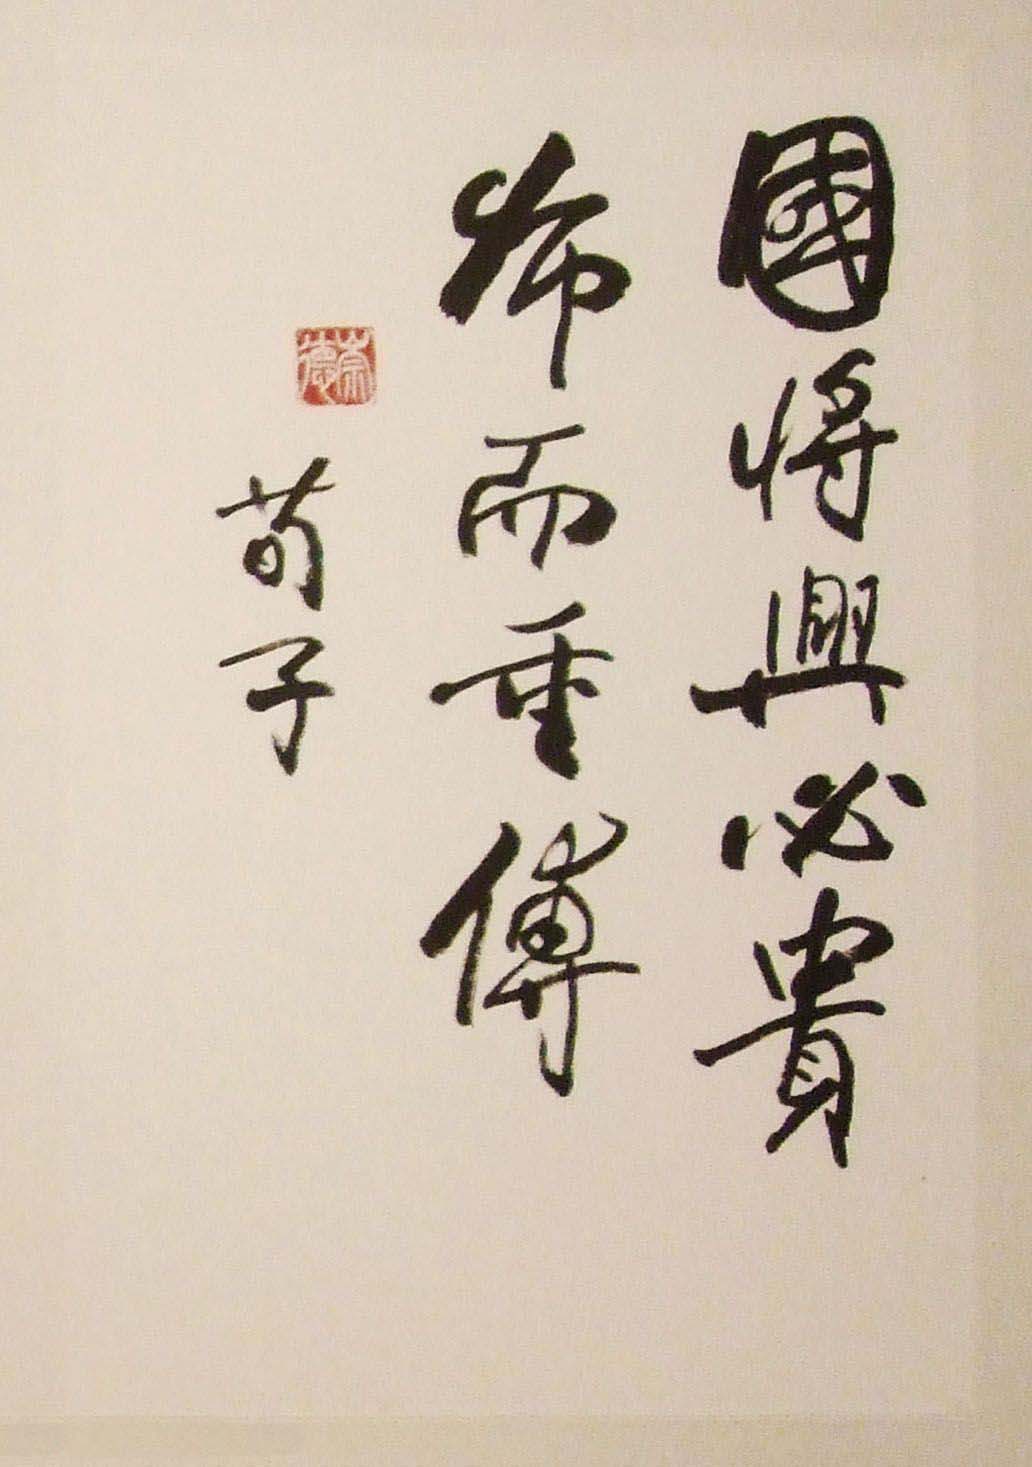 國將興必貴
師而重傅
荀子
崇德